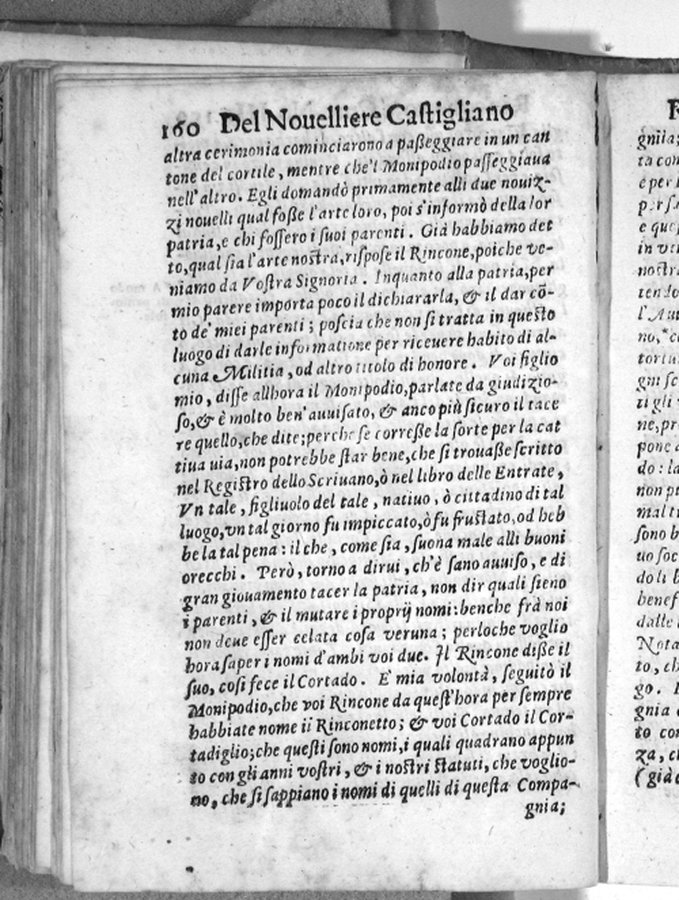 160 Del Nouelliere Castigliano
altra cerimonia cominciarono a paßeggiare in un can
tone del cortile, mentre che'l Monipodio paſſeggiaua
nell'altro. Egli domandò primamente alli due nouiz-
zi nouelli qual foße l'arte loro, poi s'informò della lor
patria, e chi foſſero i ſuoi parenti. Già habbiamo det
to, qual ſia l'arte noſtra, riſpoſe il Rincone, poiche ve-
niamo da Voſtra Signoria. Inquanto alla patria, per
mio parere importa poco il dichiararla, & il dar cõ-
to de' miei parenti; poſcia che non ſi tratta in queſto
luogo di darle informatione per riceuere habito di al-
cuna Militia, od altro titolo di honore. Voi figlio
mio, diſſe allhora il Monipodio, parlate da giudizio-
ſo, & è molto ben'auuiſato, & anco più ſicuro il tace
re quello, che dite; perche ſe correße la ſorte per la cat
tiua uia, non potrebbe ſtar bene, che ſi trouaße ſcritto
nel Regiſtro dello Scriuano, ò nel libro delle Entrate,
Vn tale, figliuolo del tale, natiuo, ò cittadino di tal
luogo, vn tal giorno fu impiccato, ò fu fruſtato, od heb
be la tal pena: il che, come ſia, ſuona male alli buoni
orecchi. Però, torno a dirui, ch'è ſano auuiſo, e di
gran giouamento tacer la patria, non dir quali ſieno
i parenti, & il mutare i proprij nomi: benche frà noi
non deue eſſer celata coſa veruna; perloche voglio
hora ſaper i nomi d'ambi voi due. Il Rincone diße il
ſuo, coſi fece il Cortado. E' mia volontà, ſeguitò il
Monipodio, che voi Rincone da queſt'hora per ſempre
habbiate nome il Rinconetto; & voi Cortado il Cor-
tadiglio; che queſti ſono nomi, i quali quadrano appun
to con gli anni voſtri, & i noſtri ſtatuti, che voglio-
no, che ſi ſappiano i nomi di quelli di queſta Compa-
gnia;